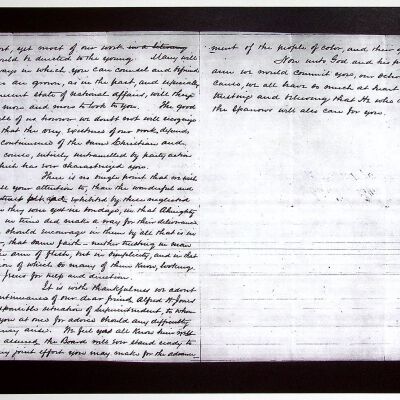 yet most of our work in a literary
would be directed to the young. Many will
ways in which you can counsel and defend
are grown, as in the past, and especially
present state of national affairs, will they
more and more to look to you. The good
all of us however we doubt not will recognize
that the very existence of our work depends
continuance of the same Christian and
course, entirely untrammelled by party action
which has ever characterized you.
There is no single point that we wish
call your attention to, than the wonderful and
exhibited by these neglected
when they were yet in bondage, in that Almighty
in time did make a way for their deliverance
should encourage in them by all that is in
that same faith - neither trusting in man
the arm of flesh, but in simplicity, and in that
of which so many of them know, looking
for help and direction.
It is with thankfulness we advert
continuance of our dear friend Alfred H. Jones
responsible situation of Superintendent, to whom
you at once for advice should any difficulty
may arise. We feel you all know him well
assured the Board will ever stand ready to
any joint effort you may make for the advance-
ment of the people of color, and their
Now unto God and his
we would commit you, our
cause, we all have so much at heart
trusting and believing that He who
the Sparrows will also care for you.